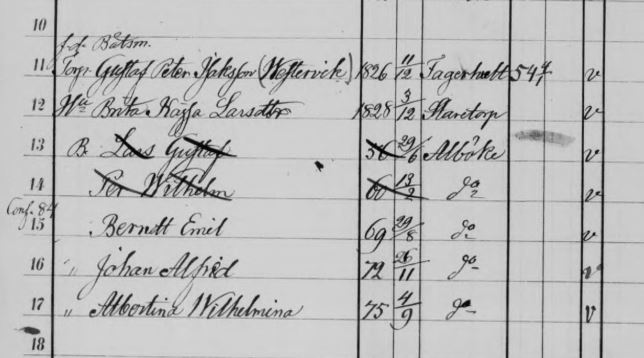 10
f.d. Båtsm.
11 Torp. Gustaf Peter Isaksson (Westervik) 1826 11/12 Fagerhult 54 v
12 Hu Brita Kajsa Larsdtr 1828 3/12 Staretorp v
13 B. Lars Gustaf 56 29/6 Alböke v
14 Per Wilhelm 60 13/2 do v
Conf. 84
15 Berndt Emil 69 29/8 do v
16 " Johan Alfrid 72 26/11 do v
17 " Albertina Wilhelmina 75 4/9 do v
18